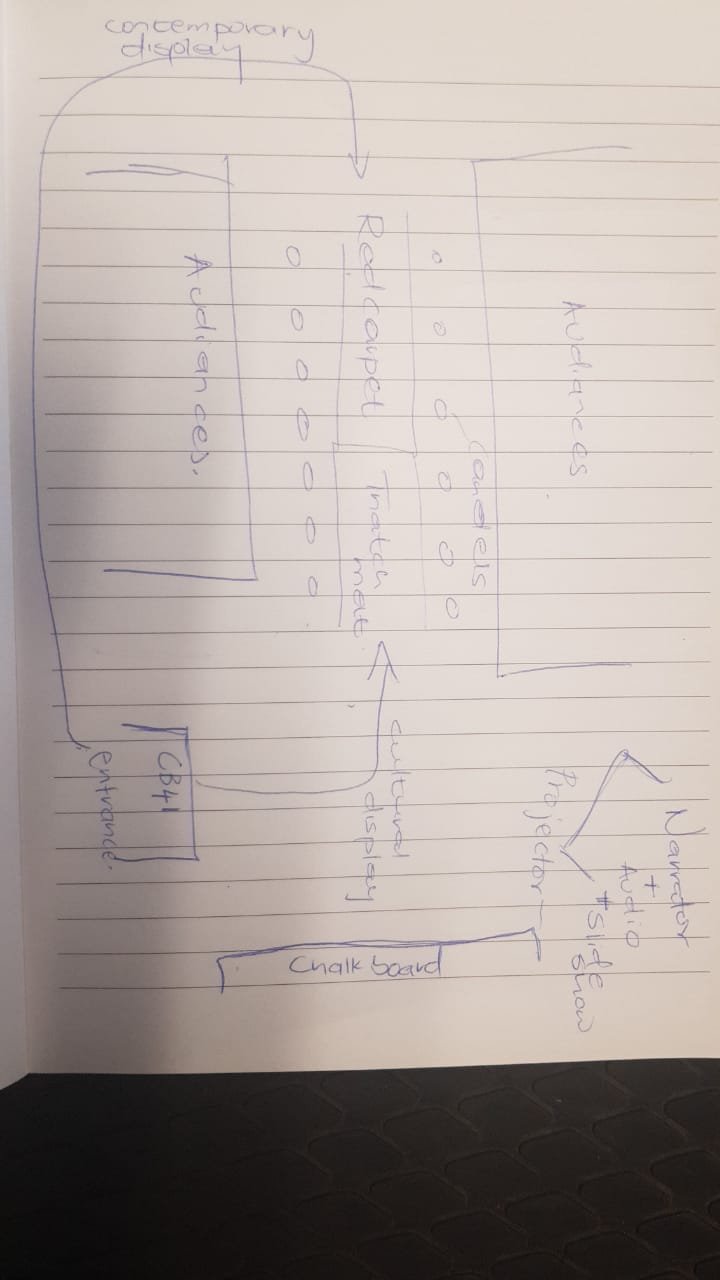 contemporary
display
Audiances
candels
Red carpet
Thatch
mat
Audiances.
cultural
display
CB41
entrance.
Projector
Narrator
+
Audio
* Slide
show
Chalk board